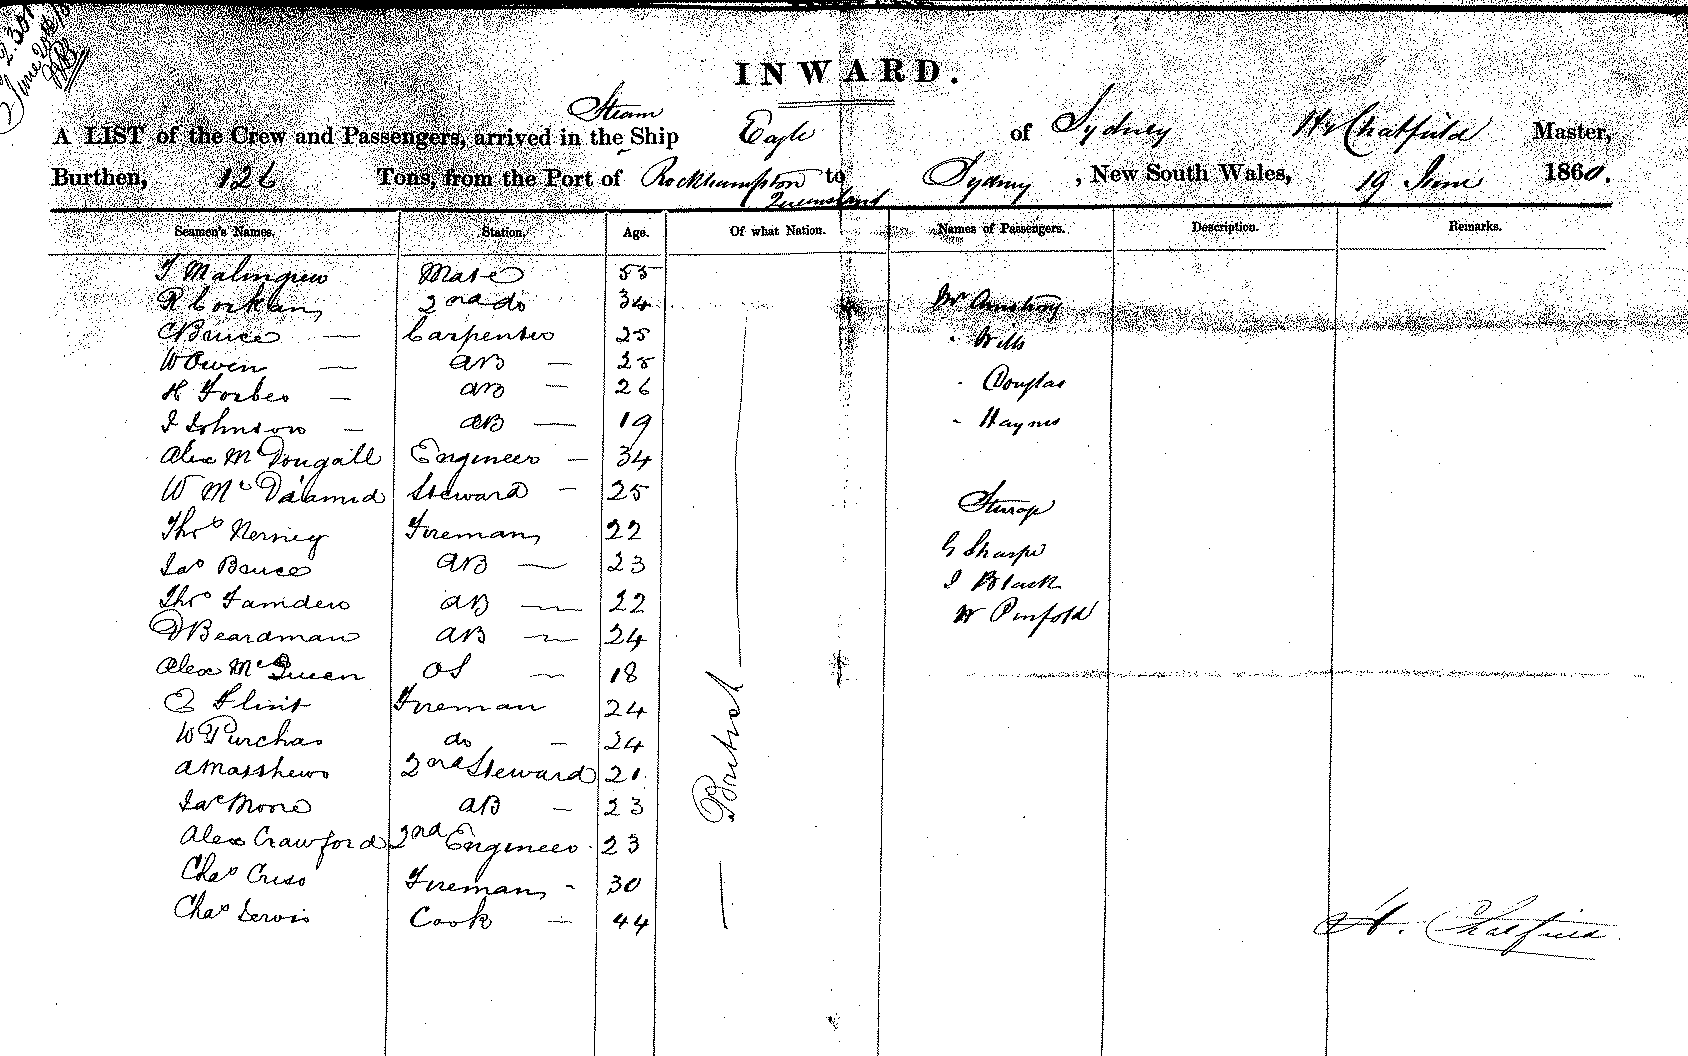 2.30
June 20
INWARD.
A LIST of the Crew and Passengers, arrived in the Steam Ship Eagle of Sydney Hy Chatfield Master,
Burthen, 126 Tons, from the Port of Rockhampton Queensland to Sydney, New South Wales, 19 June 1860.
Seamen's Names. Station. Age. Of what Nation. Names of Passengers. Description. Remarks.
Mate 55
R Corkan 2nd do 34 Mr Armstrong
C Bruce — Carpenter 25 " Wills
W Owen — AB — 25
H Forbes — AB — 26 " Douglas
J Johnson — AB — 19 " Haynes
Alex McDougall Engineer — 34
W McDiamid Steward — 25
Thos Nerney Fireman 22
Jas Bruce AB — 23 G Sharpe
Thos AB — 22 J Black
D Beardman AB — 24 W Penfold
Alex McQueen OS — 18
E Flint Fireman 24
W Purchas do — 24
A Matthews 2nd Steward 21
Jas Moore AB — 23
Alex Crawford 2nd Engineer 23
Chas Fireman - 30
Chas Lewis Cook — 44
— British —
H. Chatfield